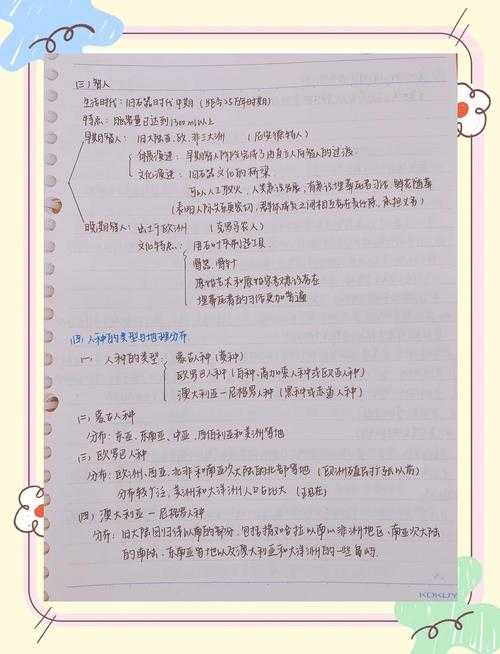 (三)智人
生活时代：旧石器时代中期（距今25万年时期）
特点：脑容量已达到1300ml以上
早期智人：旧大陆亚、欧、非三大洲（尼安德特人）
体质演进：早期智人阶段完成了由直立人向智人的过渡
文化演进：旧石器文化的
可以人工取火，人类意识发展，有意识埋葬死者习俗，鲜花随葬
(表明人际关系更密切，群体成员之间相互存在责任感，承担义务)
晚期智人：出土于欧洲（克罗马农人）
文化特点：用石叶来制造工具
骨器、骨针
原始艺术和原始宗教意识存在
埋葬死者的习俗更加普遍
(四)人种的类型与地理分布
一、人种的类型：蒙古人种（黄种）
欧罗巴人种（白种、高加索人种或欧亚人种）
澳大利亚－尼格罗人种（黑种或赤道人种）
(二)蒙古人种
分布：东亚、东南亚、中亚、西伯利亚和美洲等地
(三)欧罗巴人种
分布：欧洲、西亚、北非和南亚次大陆的北部等地（欧洲殖民扩张以前）
分布较广泛，美洲和大洋洲人口占比大（现在）
(四)澳大利亚－尼格罗人种
分布：旧大陆回归线以南的部分，包括撒哈拉以南的非洲地区、南亚次大陆
的南陆、东南亚等地以及澳大利亚和大洋洲的一些岛屿.
KOKUYO